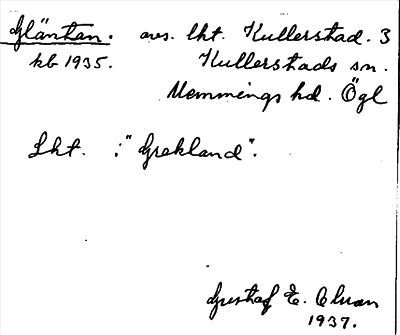 Gläntan. avs. lht. Kullerstad. 3
kb 1935. Kullerstads sn.
Memmings hd. Ögl
Lht. :"Grekland".
Gustaf E.
1937.